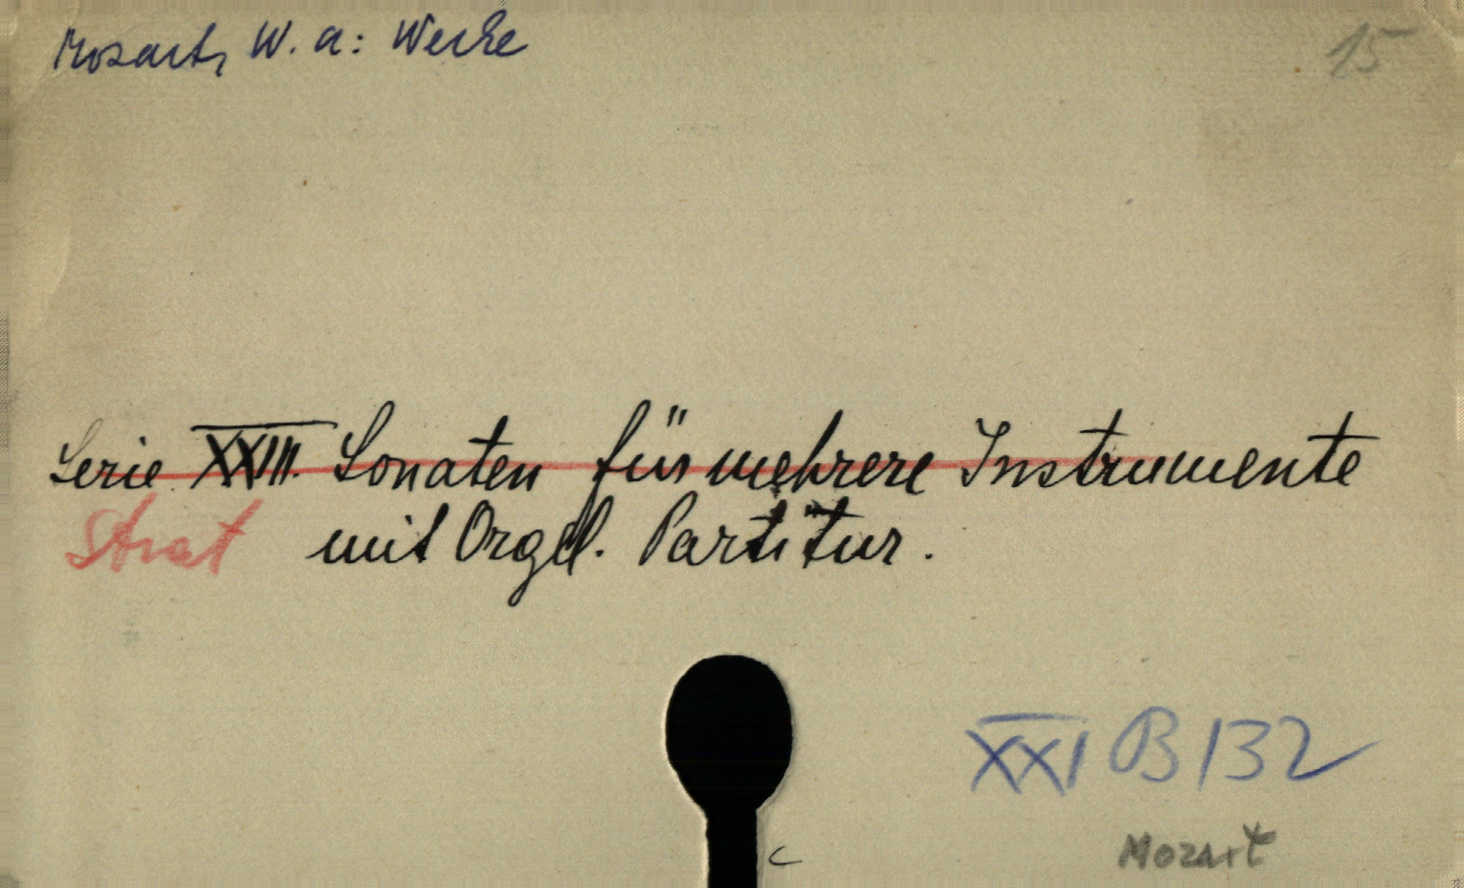 Mozart, W. A.: Werke
15
Serie XXIII. Sonaten für mehrere Instrumente
Strat mit Orgel. Partitur.
XXI B 132
Mozart